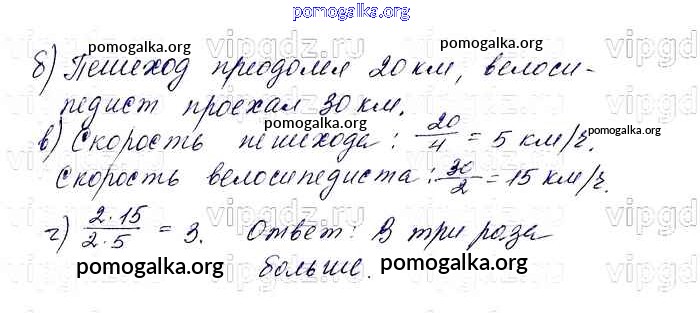 pomogalka.org
pomogalka.org pomogalka.org
б) Пешеход преодолел 20 км, велоси-
педист проехал 30 км.
pomogalka.org pomogalka.org
в) Скорость пешехода: 20/4 = 5 км/ч.
Скорость велосипедиста: 30/2 = 15 км/ч.
г) 2·15/2·5 = 3. Ответ: В три раза
больше.
pomogalka.org pomogalka.org
vipgdz.ru